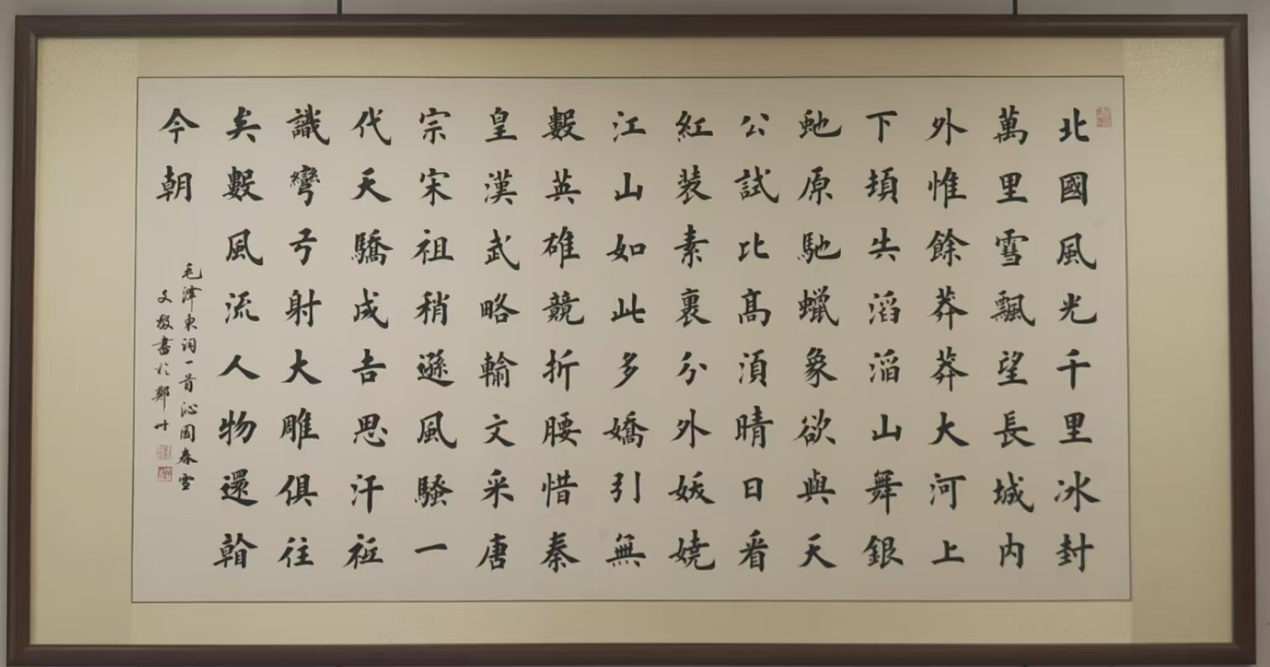 北國風光千里冰封
萬里雪飄望長城内
外惟餘莽莽大河上
下頓失滔滔山舞銀
虵原馳蠟象欲與天
公試比高須晴日看
紅裝素裹分外妖嬈
江山如此多嬌引無
數英雄競折腰惜秦
皇漢武略輸文采唐
宗宋祖稍遜風騷一
代天驕成吉思汗祗
識彎弓射大雕俱往
矣數風流人物還看
今朝
毛澤東詞一首沁園春雪
文敬書於鄭州